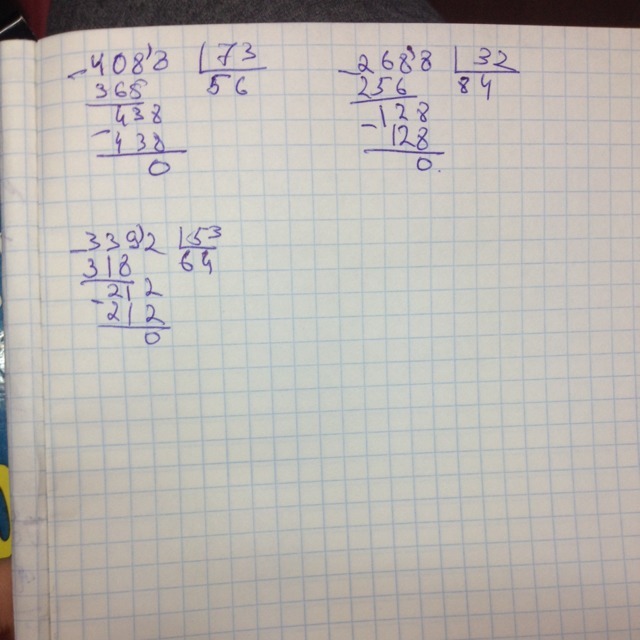 - 4088 | 73
365 56
- 438
438
0
- 2688 | 32
256 84
- 128
128
0.
- 3392 | 53
318 64
- 212
212
0